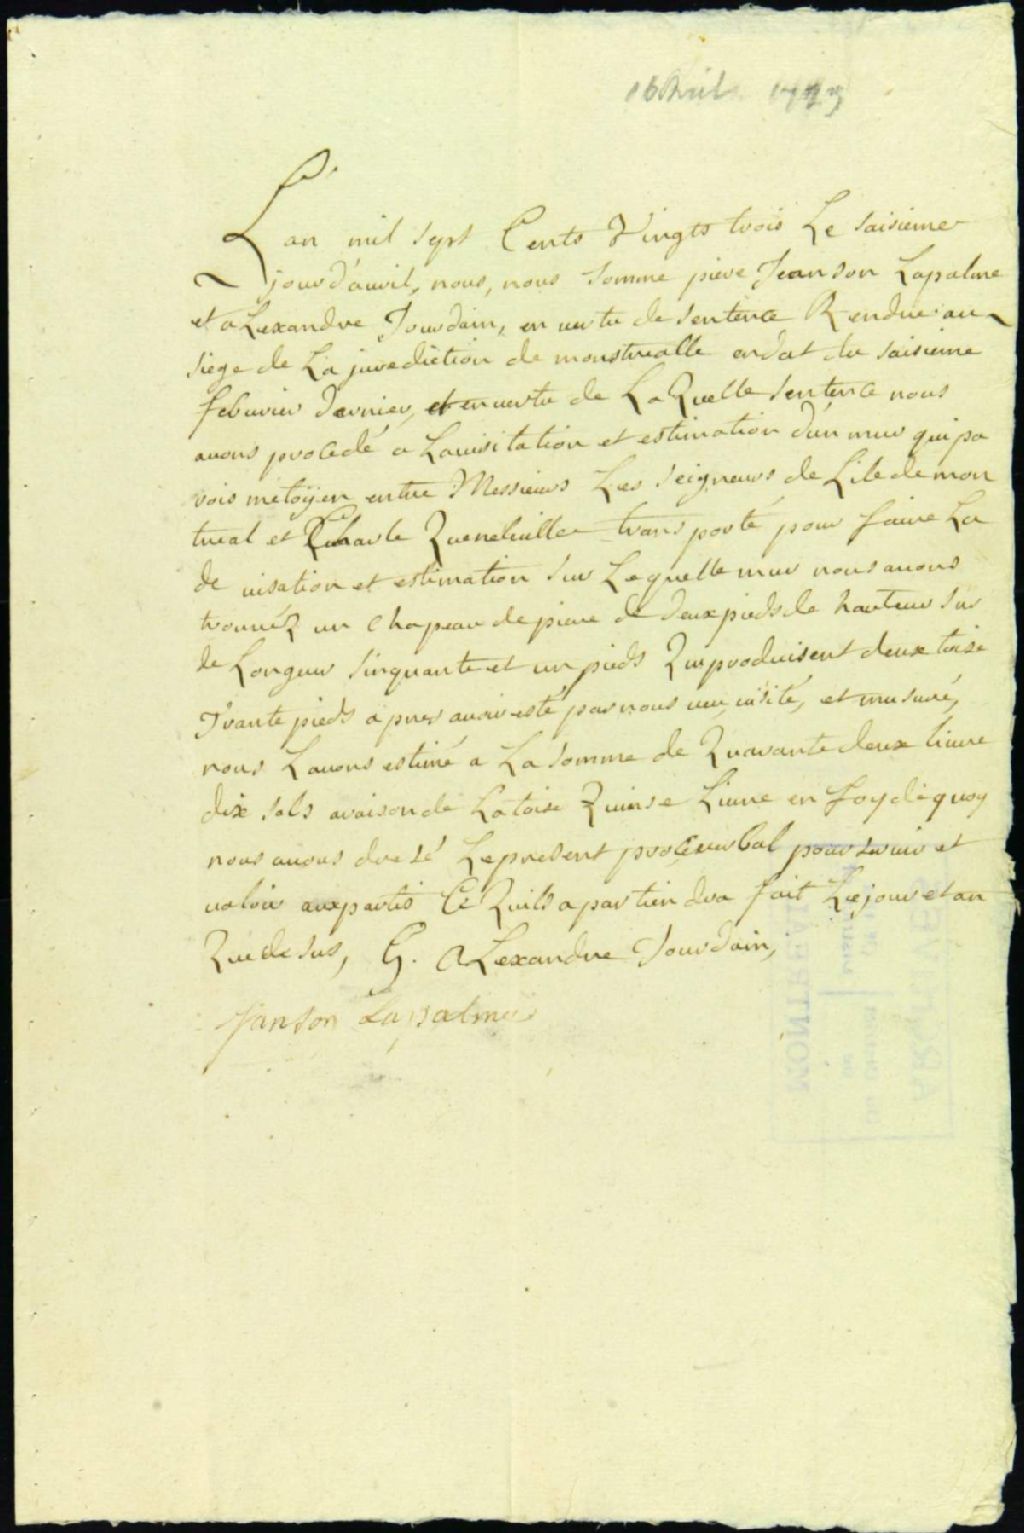 16 Avril 1723
Lan mil sept Cents Vingts trois Le saisieme
jour d'auvil, nous, nous somme piere Jeanson Lapalme
et aLexandre Jourdain, en uertu de sentence Rendue au
siege de La jurediction de monstrealle endat du saisieme
feburier dernier, et en uertu de LaQuelle sentence nous
auons procedé a Lauisitation et estimation d'un mur qui pa
rois metoÿen entre Messieurs Les seigneurs de Lile de mon
treal et Charle Queneluille transporté pour faire La
de uisation et estimation sur Lequelle mur nous auons
trouuéz un chapeau de piere de deux pieds de hauteur sur
de Longeur sinquante et un pieds Qui produisent deux toise
Trante pieds apres auoir esté par nous ueu, uisité, et musuré,
nous Lauons estimé a La somme de Quarante deux liure
dix sols araison de La toise Quinse Liure en foy de quoy
nous auons dresé Lepresent proceuerbal pour seruir et
ualoir auxpartis Ce Quils apartiendra fait Lejour et an
Que desus, G. ALexandre Jourdain,
Janson Lapalme
MONTREAL
ARCHIVES